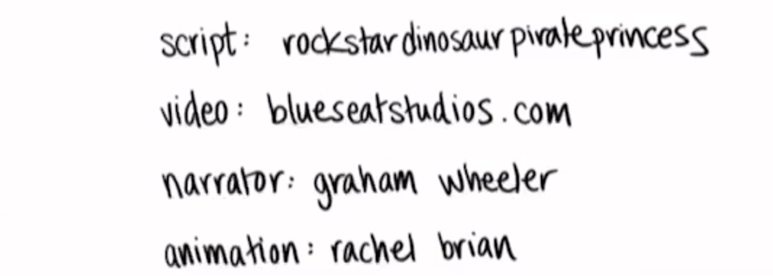 script: rockstardinosaurpirateprincess
video: blueseatstudios.com
narrator: graham wheeler
animation: rachel brian